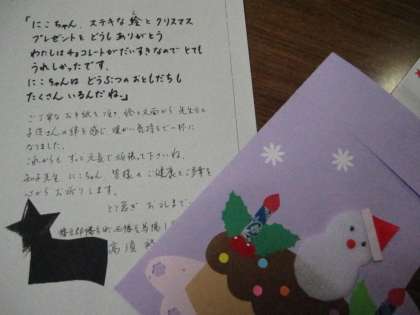 「にこちゃん、ステキな絵とクリスマス
プレゼントをどうもありがとう
わたしはチョコレートがだいすきなので とても
うれしかったです。
にこちゃんは どうぶつのおともだちも
たくさん いるんだね。」
ご丁寧な お手紙を頂き 絵と文面から 先生と
子供さんの絆を感じ 暖かい気持ちで一杯に
なりました。
これからも ずっと元気で頑張って下さいね。
先生 にこちゃん 皆様の ご健康と ご多幸を
心から お祈りします。
とり急ぎ お礼まで